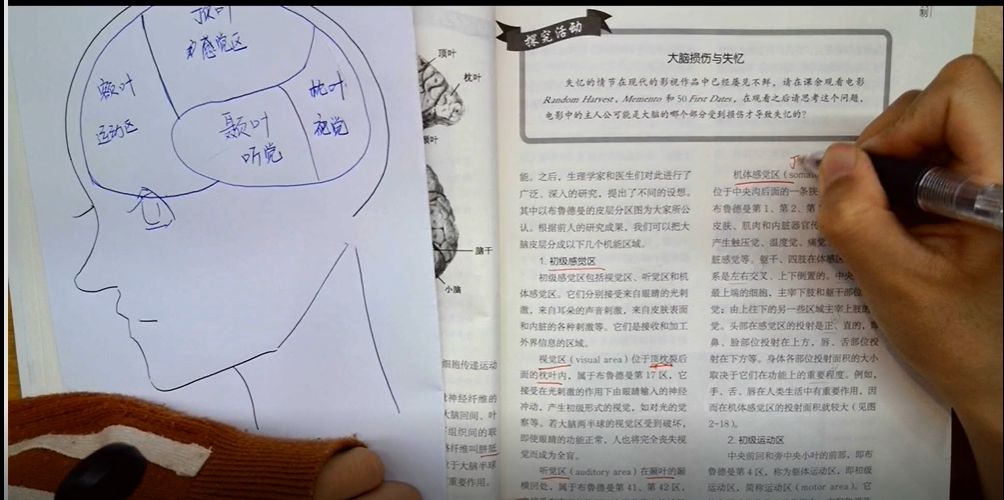 顶叶
感觉区
额叶
运动区
颞叶
听觉
枕叶
视觉
顶叶
枕叶
脑干
小脑
细胞传递运动
神经纤维的
大脑回间、叶
组织间的联
纤维叫胼胝
于大脑半球
重要作用。
制
探究活动
大脑损伤与失忆
失忆的情节在现代的影视作品中已经屡见不鲜，请在课余观看电影
Random Harvest，Memento 和 50 First Dates，在观看之后请思考这个问题，
电影中的主人公可能是大脑的哪个部分受到损伤才导致失忆的？
能。之后，生理学家和医生们对此进行了
广泛、深入的研究，提出了不同的设想。
其中以布鲁德曼的皮层分区图为大家所公
认。根据前人的研究成果，我们可以把大
脑皮层分成以下几个机能区域。
1. 初级感觉区
初级感觉区包括视觉区、听觉区和机
体感觉区。它们分别接受来自眼睛的光刺
激，来自耳朵的声音刺激，来自皮肤表面
和内脏的各种刺激等。它们是接收和加工
外界信息的区域。
视觉区（visual area）位于顶枕裂后
面的枕叶内，属于布鲁德曼第 17 区，它
接受在光刺激的作用下由眼睛输入的神经
冲动，产生初级形式的视觉，如对光的觉
察等。若大脑两半球的视觉区受到破坏，
即使眼睛的功能正常，人也将完全丧失视
觉而成为全盲。
听觉区（auditory area）在颞叶的颞
横回处，属于布鲁德曼第 41、第 42 区，
机体感觉区（somat
位于中央沟后面的一条狭
布鲁德曼第 1、第 2、第
皮肤、肌肉和内脏器官传
产生触压觉、温度觉、痛觉
脏感觉等。躯干、四肢在体感
系是左右交叉、上下倒置的。中央
最上端的细胞，主宰下肢和躯干部位
觉；由上往下的另一些区域主宰上肢的
觉。头部在感觉区的投射是正、直的，
鼻、脸部位投射在上方，唇、舌部位投
射在下方等。身体各部位投射面积的大小
取决于它们在功能上的重要程度。例如，
手、舌、唇在人类生活中有重要作用，因
而在机体感觉区的投射面积就较大（见图
2-18）。
2. 初级运动区
中央前回和旁中央小叶的前部，即布
鲁德曼第 4 区，称为躯体运动区，即初级
运动区，简称运动区（motor area）。它